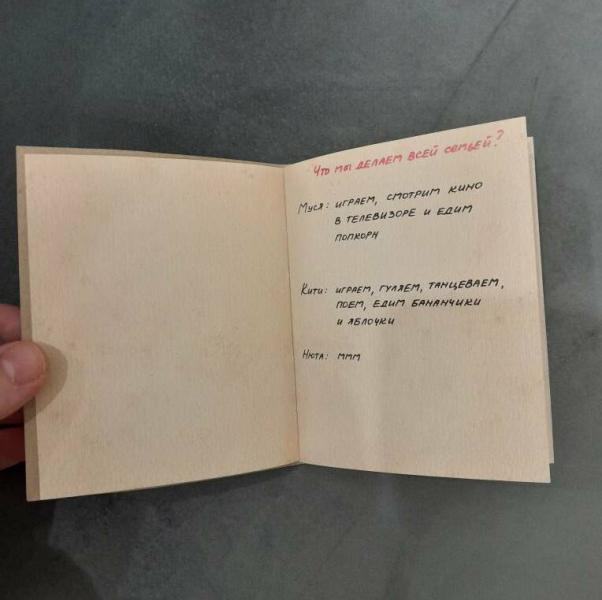 Что мы делаем всей семьей?
Муся: играем, смотрим кино
в телевизоре и едим
попкорн
Кити: играем, гуляем, танцеваем,
поем, едим бананчики
и яблочки
Нюта: ммм